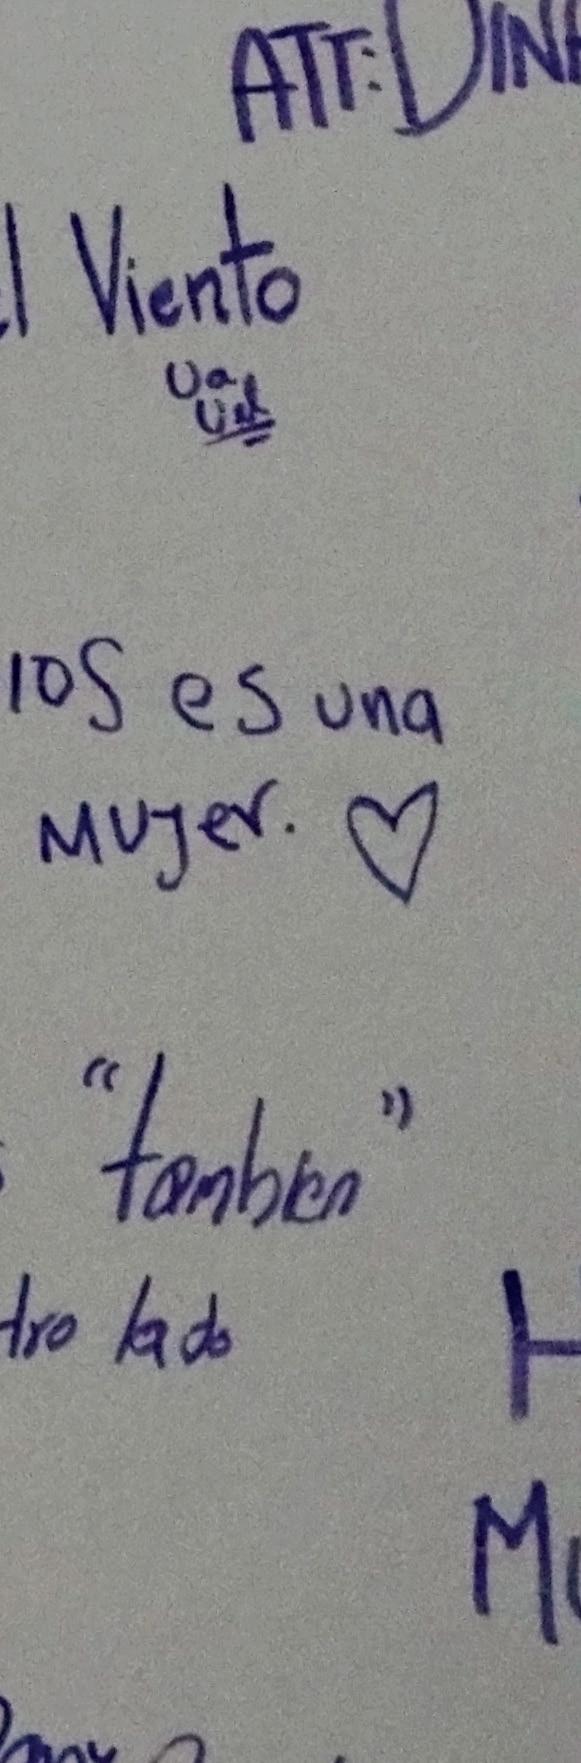 ATT: DINA
el Viento
ios es una
Mujer.
"tambien"
tro lado
H
Mu